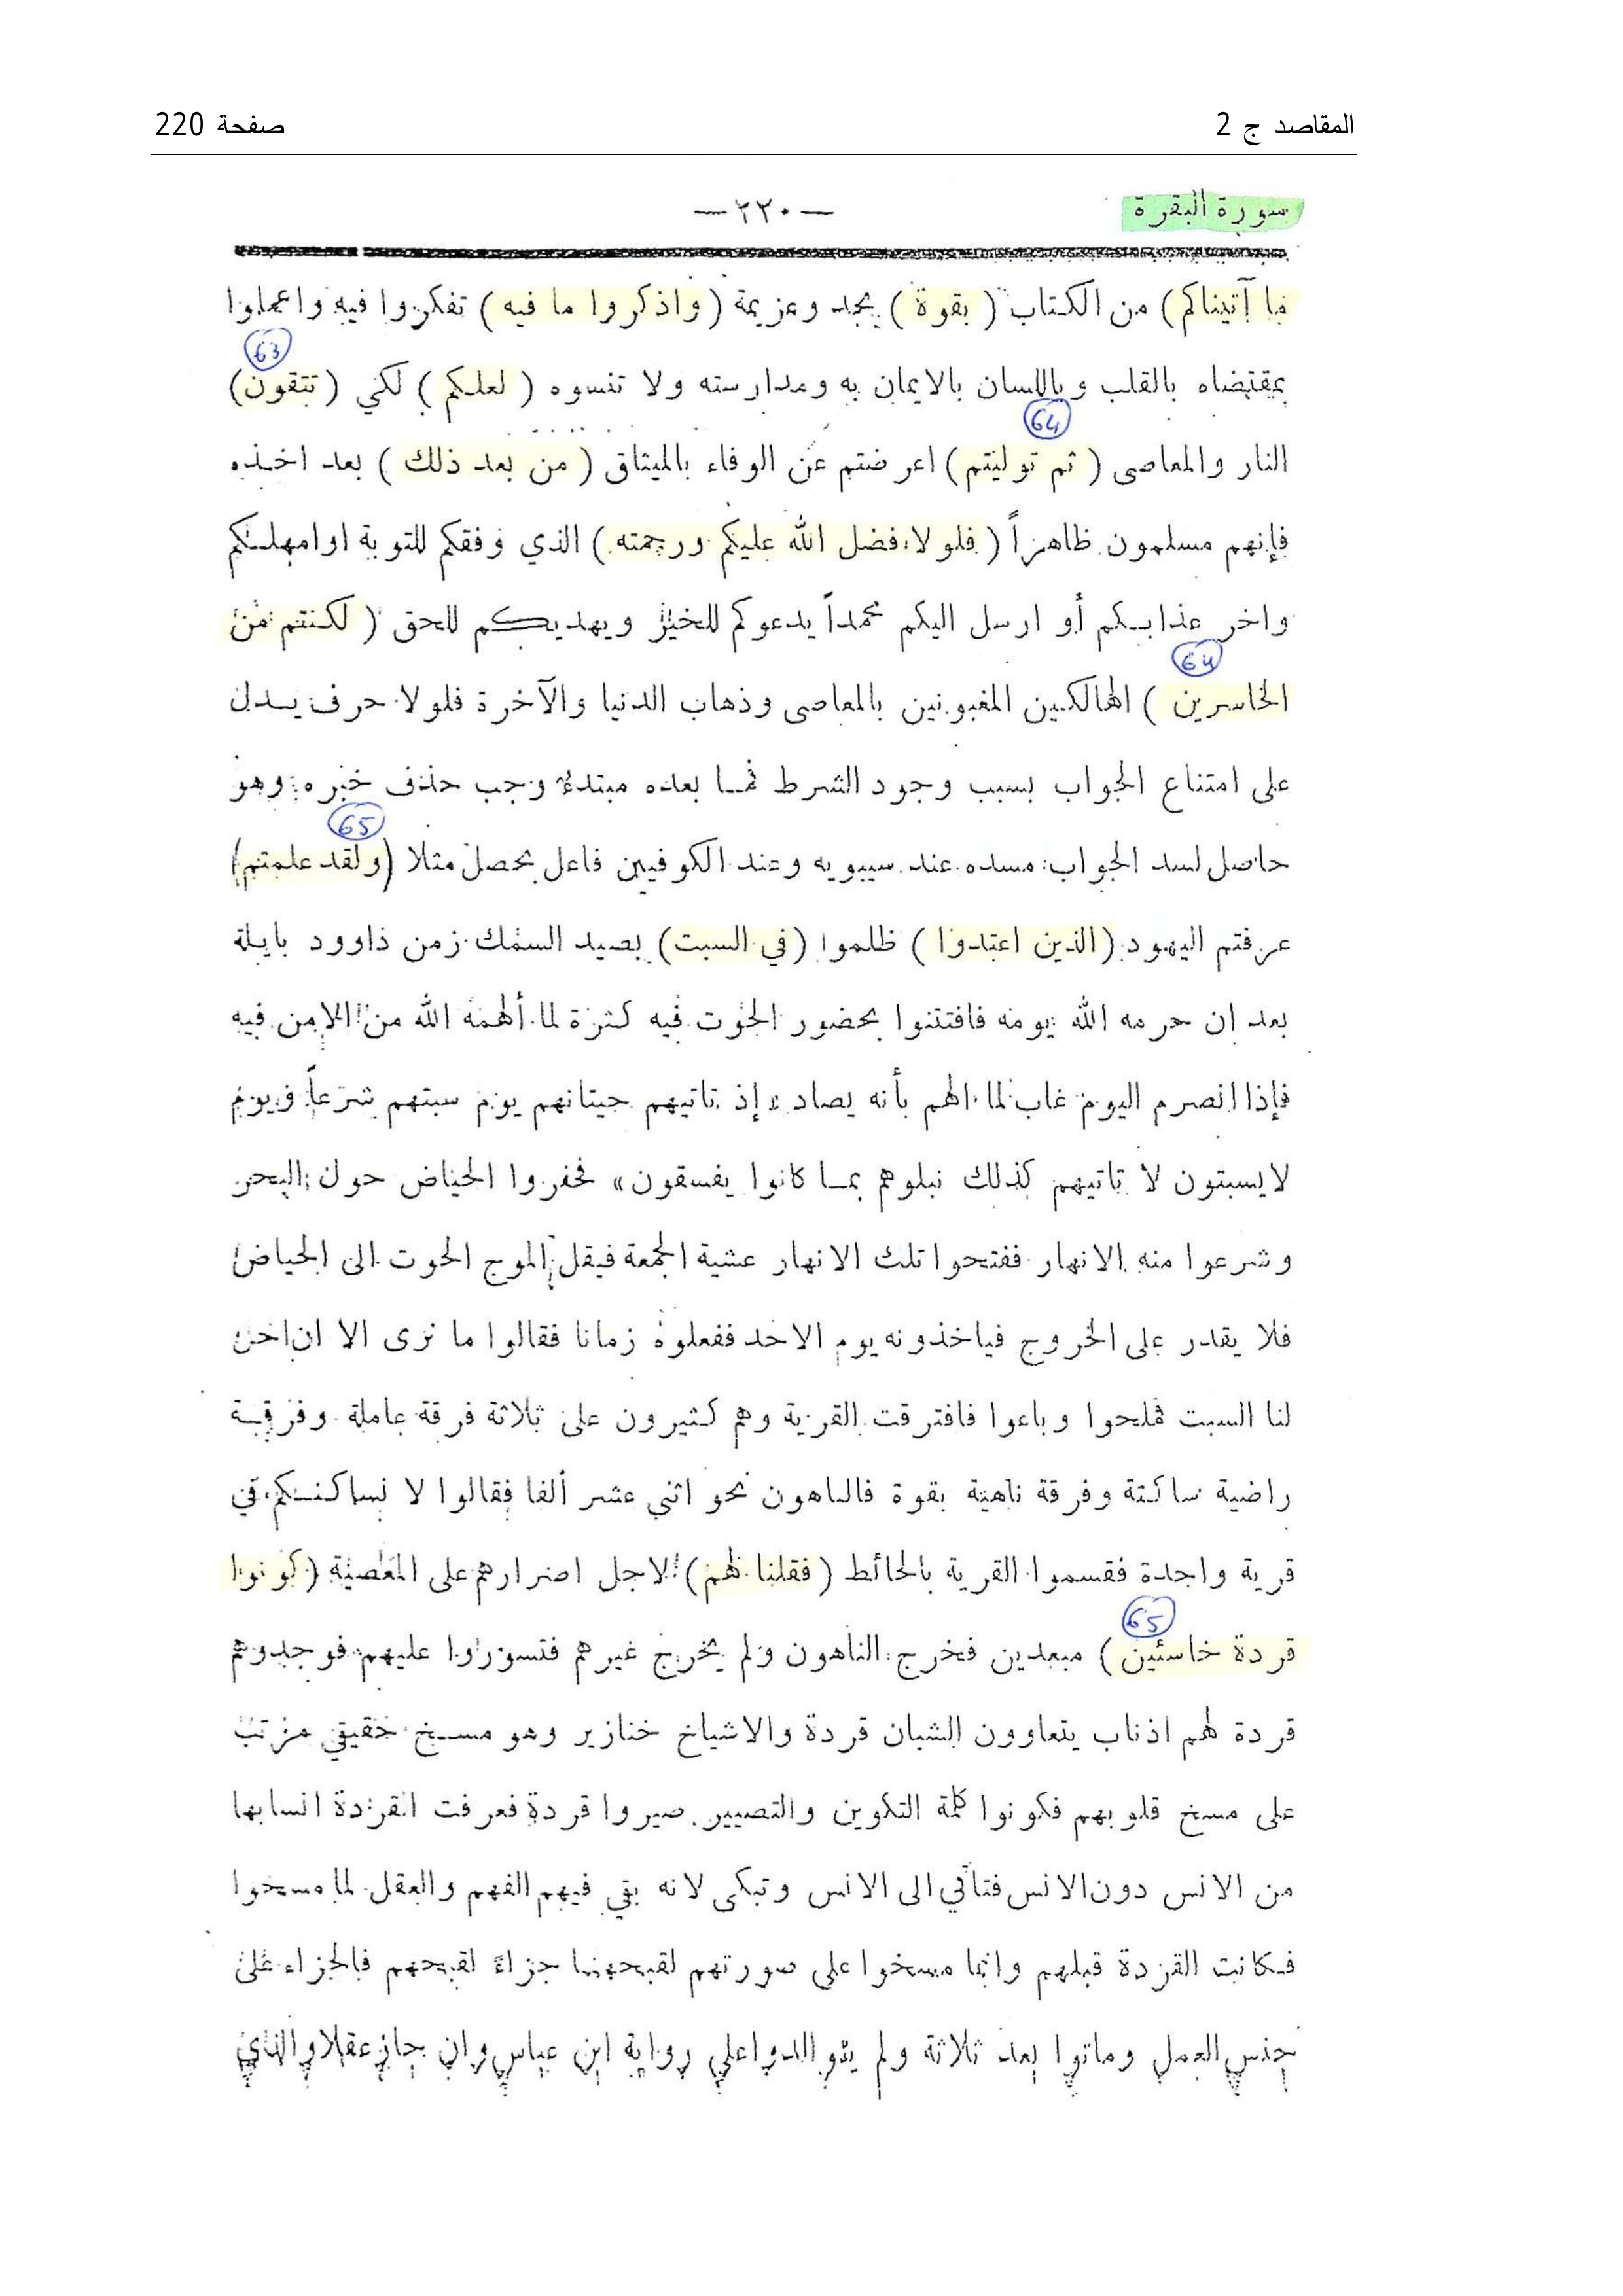 المقاصد ج 2
صفحة 220
سورة البقرة
—٢٢٠—
ما آتيناكم) من الكتاب (بقوة) بجد وعزيمة (واذكروا ما فيه) تفكروا فيه واعملوا
63
بمقتضاه بالقلب وباللسان بالايمان به ومدارسته ولا تنسوه (لعلكم) لكي (تتقون)
64
النار والمعاصى (ثم توليتم) اعرضتم عن الوفاء بالميثاق (من بعد ذلك) بعد اخذه
فإنهم مسلمون ظاهراً (فلولا فضل الله عليكم ورحمته) الذي وفقكم للتوبة او امهلكم
واخر عذابكم أو ارسل اليكم محمداً يدعوكم للخير ويهديكم للحق (لكنتم من
64
الخاسرين) الهالكين المغبونين بالمعاصى وذهاب الدنيا والآخرة فلولا حرف يدل
على امتناع الجواب بسبب وجود الشرط فما بعده مبتدء وجب حذف خبره وهو
65
حاصل لسد الجواب مسده عند سيبويه وعند الكوفيين فاعل بحصل مثلا (ولقد علمتم)
عرفتم اليهود (الذين اعتدوا) ظلموا (في السبت) بصيد السمك زمن داوود بايلة
بعد ان حرمه الله يومه فافتتنوا بحضور الحوت فيه كثرة لما ألهمه الله من الامن فيه
فإذا انصرم اليوم غاب لما الهم بأنه يصاد «إذ تاتيهم حيتانهم يوم سبتهم شرعاً ويوم
لا يسبتون لا تاتيهم كذلك نبلوهم بما كانوا يفسقون» فحفروا الحياض حول البحر
وشرعوا منه الانهار ففتحوا تلك الانهار عشية الجمعة فيقل الموج الحوت الى الحياض
فلا يقدر على الخروج فياخذونه يوم الاحد ففعلوه زمانا فقالوا ما نرى الا ان احل
لنا السبت فملحوا وباعوا فافترقت القرية وهم كثيرون على ثلاثة فرقة عاملة وفرقة
راضية ساكتة وفرقة ناهية بقوة فالناهون نحو اثني عشر ألفا فقالوا لا نساكنكم في
قرية واحدة فقسموا القرية بالحائط (فقلنا لهم) لاجل اصرارهم على المعصية (كونوا
65
قردة خاسئين) مبعدين فخرج الناهون ولم يخرج غيرهم فتسوروا عليهم فوجدوهم
قردة لهم اذناب يتعاوون الشبان قردة والاشياخ خنازير وهو مسخ حقيقي مرتب
على مسخ قلوبهم فكونوا كلمة التكوين والتصيير صيروا قردة فعرفت القردة انسابها
من الانس دون الانس فتأتي الى الانس وتبكى لانه بقي فيهم الفهم والعقل لما مسخوا
فكانت القردة قبلهم وانما مسخوا على صورتهم لقبحها جزاءً لقبحهم فالجزاء على
جنس العمل وماتوا بعد ثلاثة ولم يتوالدوا على رواية ابن عباس وان جاز عقلا والذي